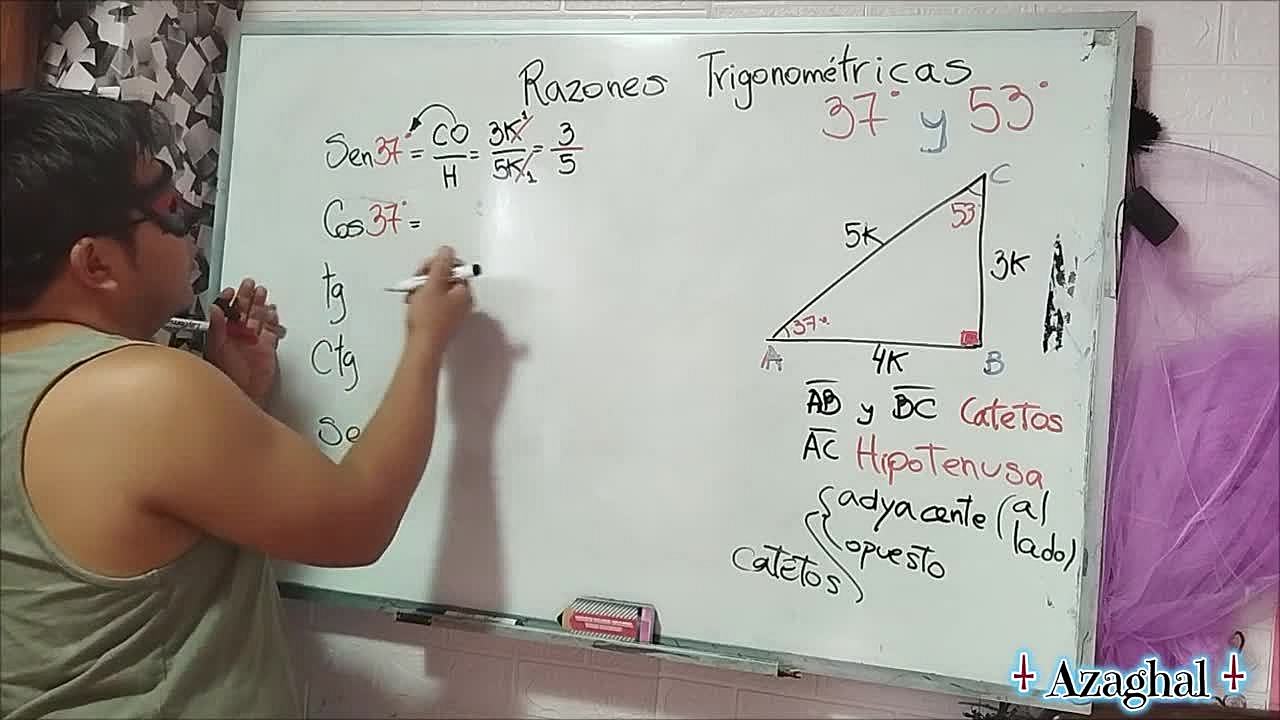 Razones Trigonométricas
37° y 53°
Sen37° = CO/H = 3K¹/5K₁ = 3/5
Cos37° =
tg
Ctg
Se
C
53
5K
3K
37°
A
4K
B
AB y BC Catetos
AC Hipotenusa
Catetos { adyacente (al lado)
opuesto
Azaghal